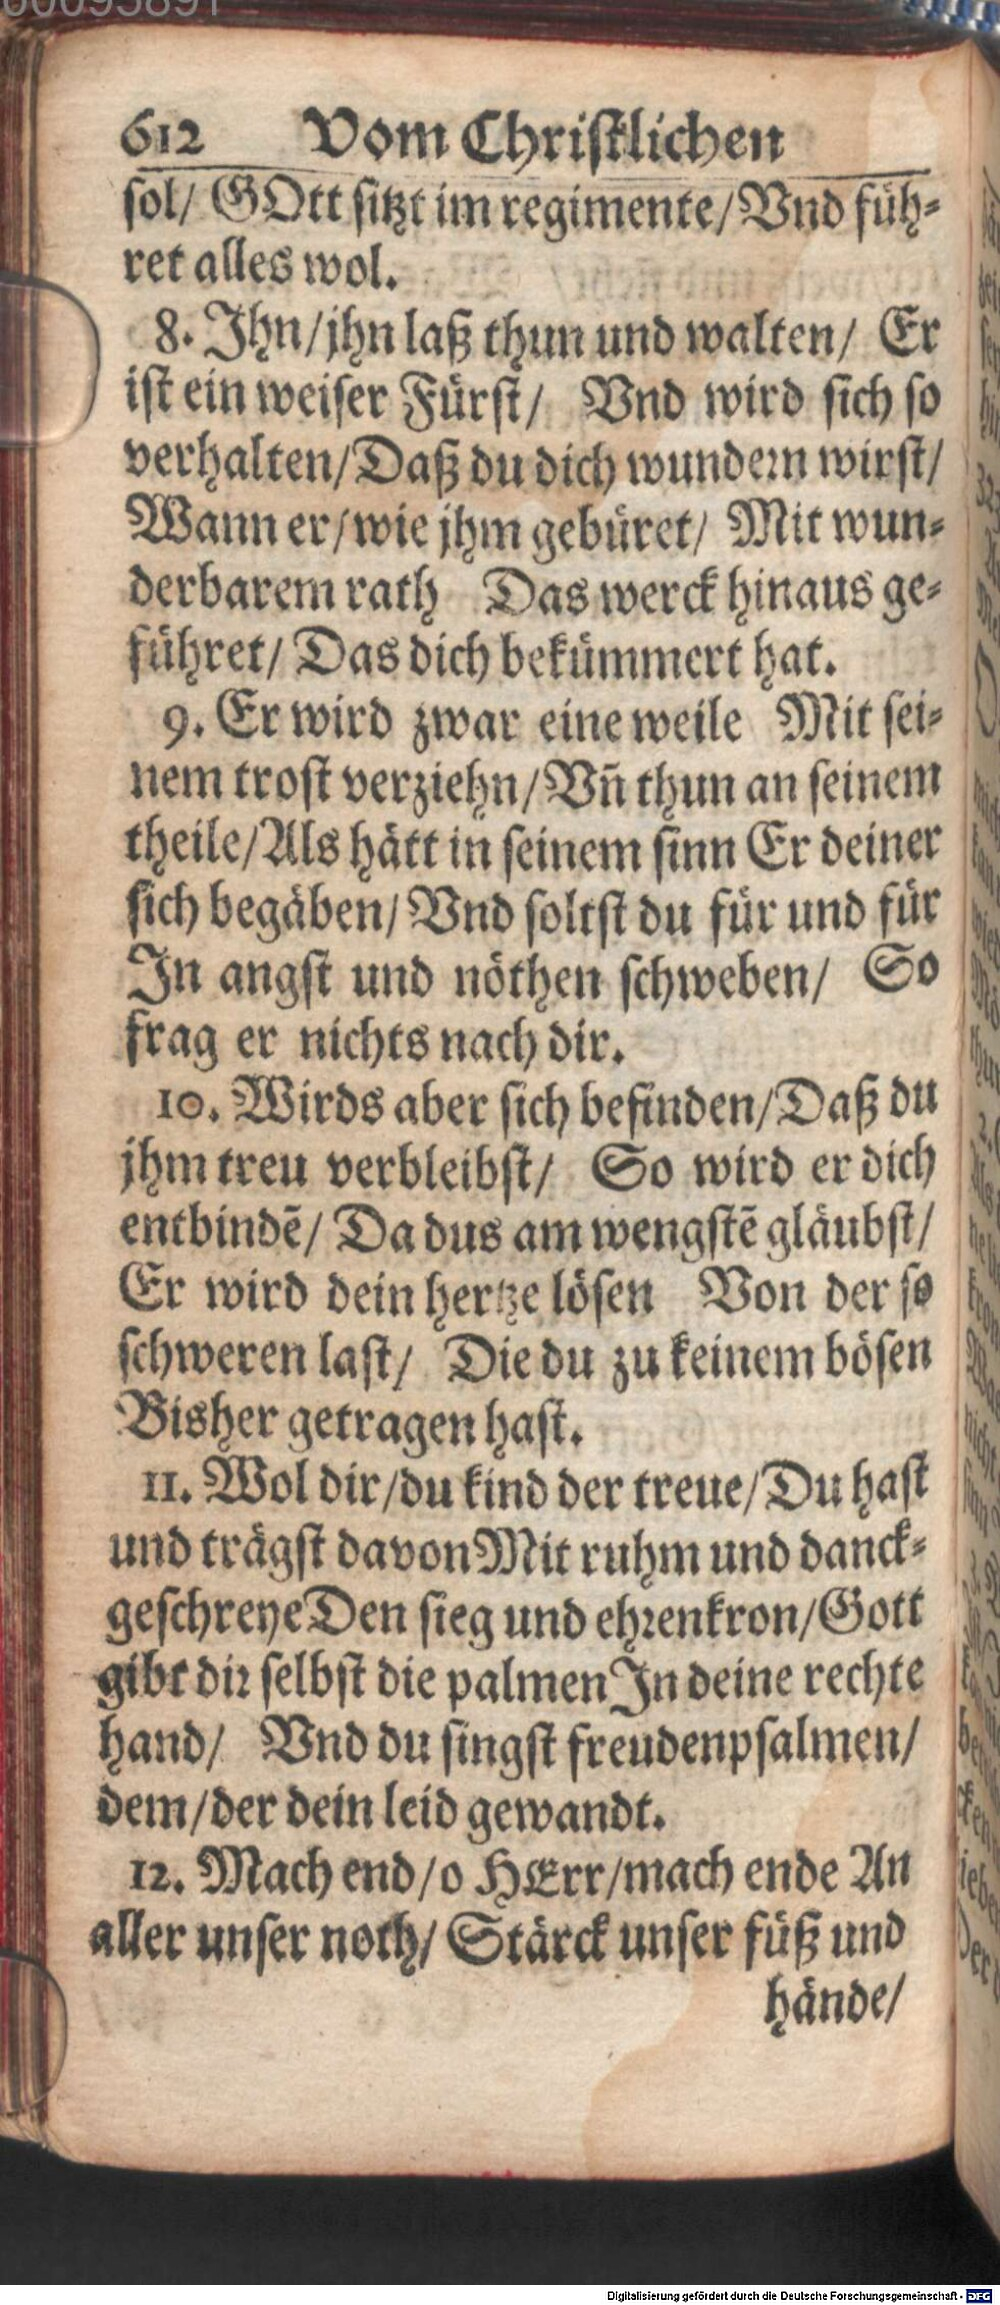 00095891
612 Vom Christlichen
sol/ GOtt sitzt im regimente/ Vnd füh-
ret alles wol.
8. Ihn/ jhn laß thun und walten/ Er
ist ein weiser Fürst/ Vnd wird sich so
verhalten/ Daß du dich wundern wirst/
Wann er/ wie jhm gebüret/ Mit wun-
derbarem rath Das werck hinaus ge-
führet/ Das dich bekümmert hat.
9. Er wird zwar eine weile Mit sei-
nem trost verziehn/ Vñ thun an seinem
theile/ Als hätt in seinem sinn Er deiner
sich begäben/ Vnd soltst du für und für
In angst und nöthen schweben/ So
frag er nichts nach dir.
10. Wirds aber sich befinden/ Daß du
jhm treu verbleibst/ So wird er dich
entbindē/ Da dus am wengstē gläubst/
Er wird dein hertze lösen Von der so
schweren last/ Die du zu keinem bösen
Bisher getragen hast.
11. Wol dir/ du kind der treue/ Du hast
und trägst davon Mit ruhm und danck-
geschreye Den sieg und ehrenkron/ Gott
gibt dir selbst die palmen In deine rechte
hand/ Vnd du singst freudenpsalmen/
dem/ der dein leid gewandt.
12. Mach end/ o HErr/ mach ende An
aller unser noth/ Stärck unser füß und
hände/
Digitalisierung gefördert durch die Deutsche Forschungsgemeinschaft - DFG